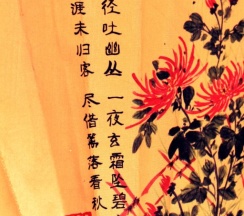 径吐幽丛 一夜玄霜坠碧
涯未归客 尽借篱落看秋